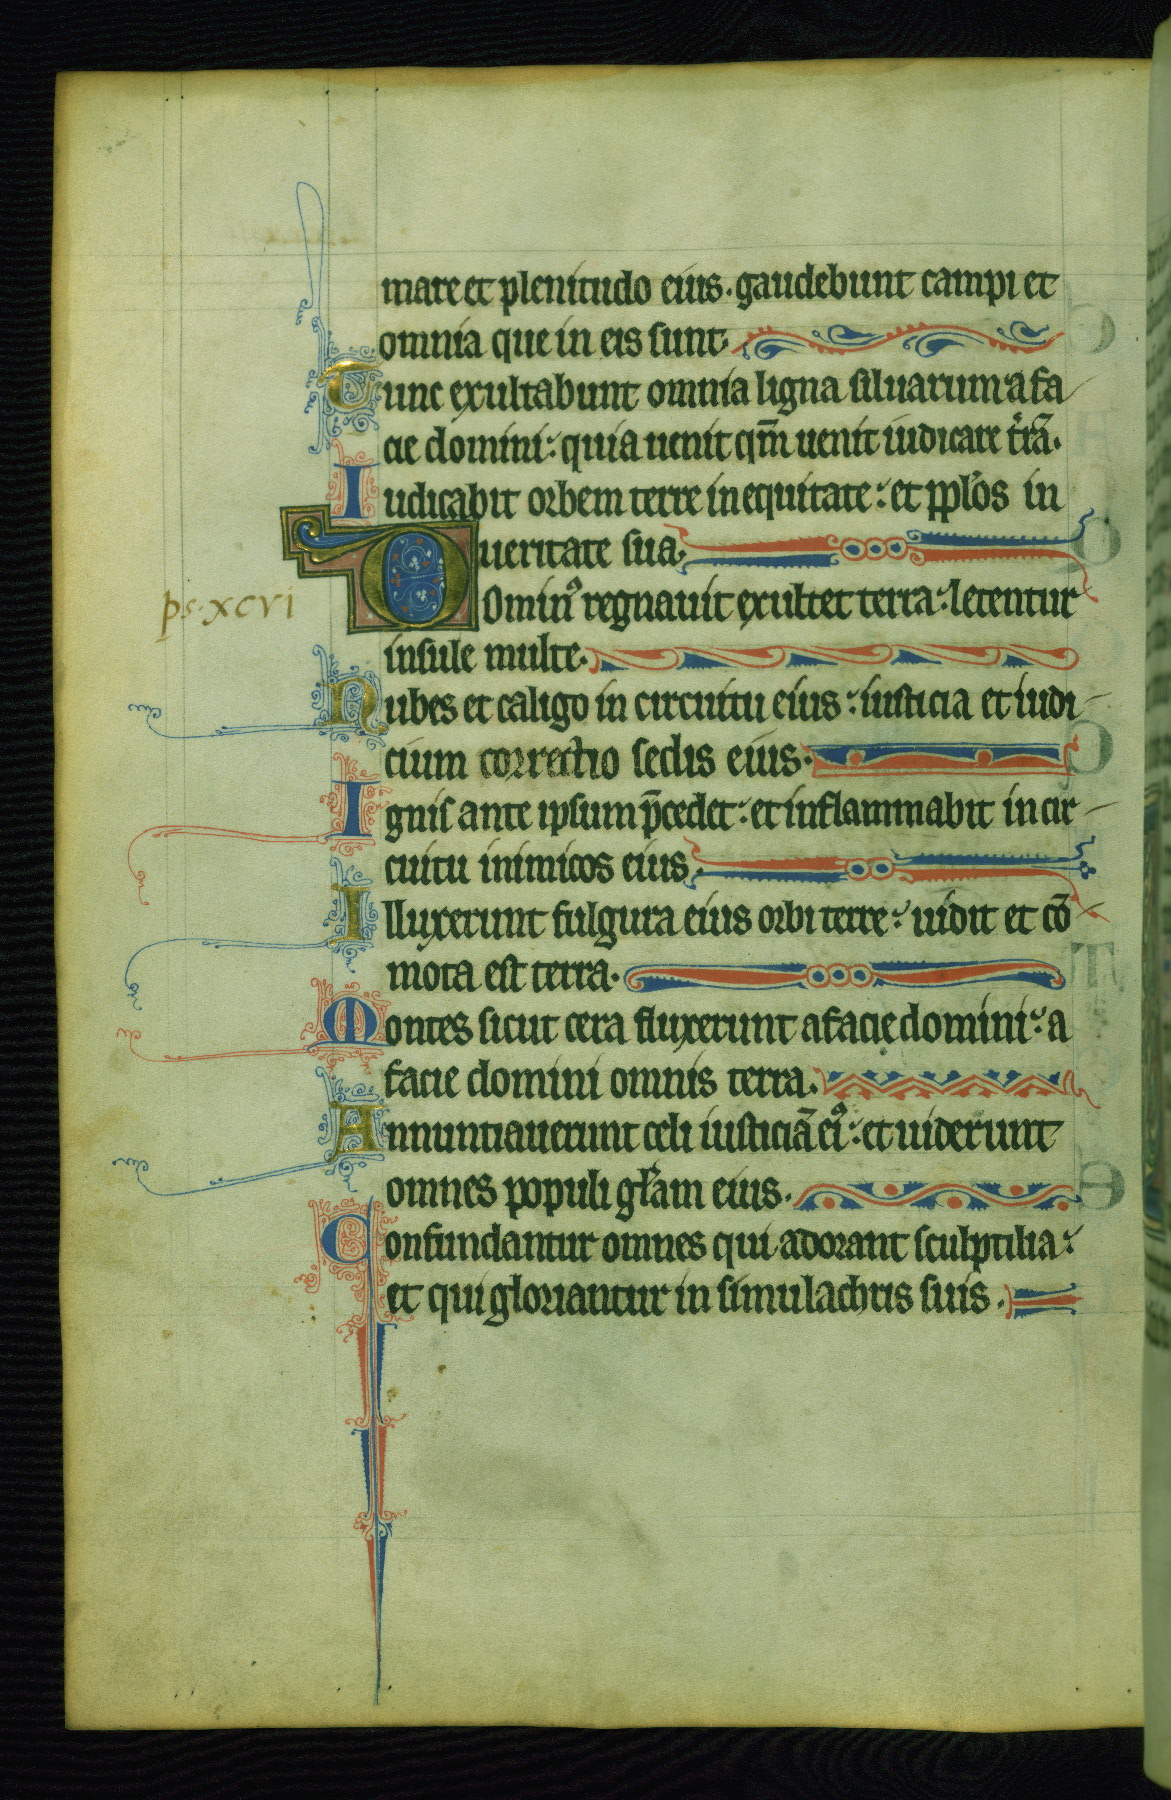 mare et plenitudo eius. gaudebunt campi et
omnia que in eis sunt.
Tunc exultabunt omnia ligna siluarum a fa
cie domini: quia uenit qm̄ uenit iudicare t̄rā.
Iudicabit orbem terre in equitate: et pplos in
ueritate sua.
ps. XCVI
Dominꝰ regnauit exultet terra: letentur
insule multe.
Nubes et caligo in circuitu eius: iusticia et iudi
cium correctio sedis eius.
Ignis ante ipsum p̄cedet: et inflammabit in cir
cuitu inimicos eius.
Illuxerunt fulgura eius orbi terre: uidit et cō
mota est terra.
Montes sicut cera fluxerunt a facie domini: a
facie domini omnis terra.
Annuntiauerunt celi iusticiā eiꝰ: et uiderunt
omnes populi gl̄am eius.
Confundantur omnes qui adorant sculptilia:
et qui gloriantur in simulachris suis.